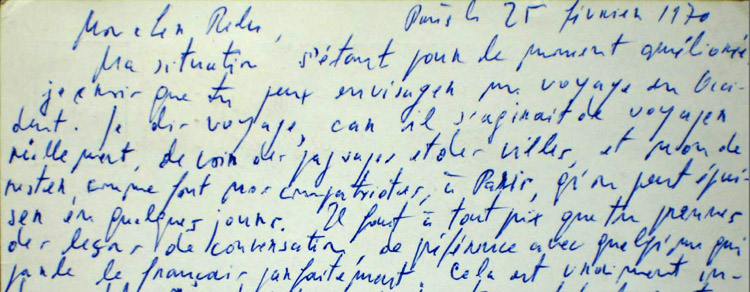 Mon cher Relu, Paris le 25 février 1970
Ma situation s'étant pour le moment améliorée,
je crois que tu peux envisager un voyage en Occi-
dent. Je dis voyage, car il s'agirait de voyager
réellement, de voir des paysages et des villes, et non de
rester, comme font nos compatriotes, à Paris, qu'on peut épui-
ser en quelques jours. Il faut à tout prix que tu prennes
des leçons de conversation, de préférence avec quelqu'un qui
parle le français parfaitement. Cela est vraiment im-